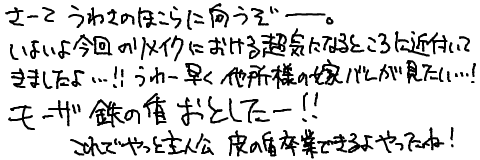 さーて うわさのほこらに向うぞー。
いよいよ今回のリメイクにおける超気になるところに近付いて
きましたよ…!! うわー早く 他所様の嫁バレが見たい…!
モーザ 鉄の盾 おとしたー!!
これでやっと主人公 皮の盾卒業できるよやったね!